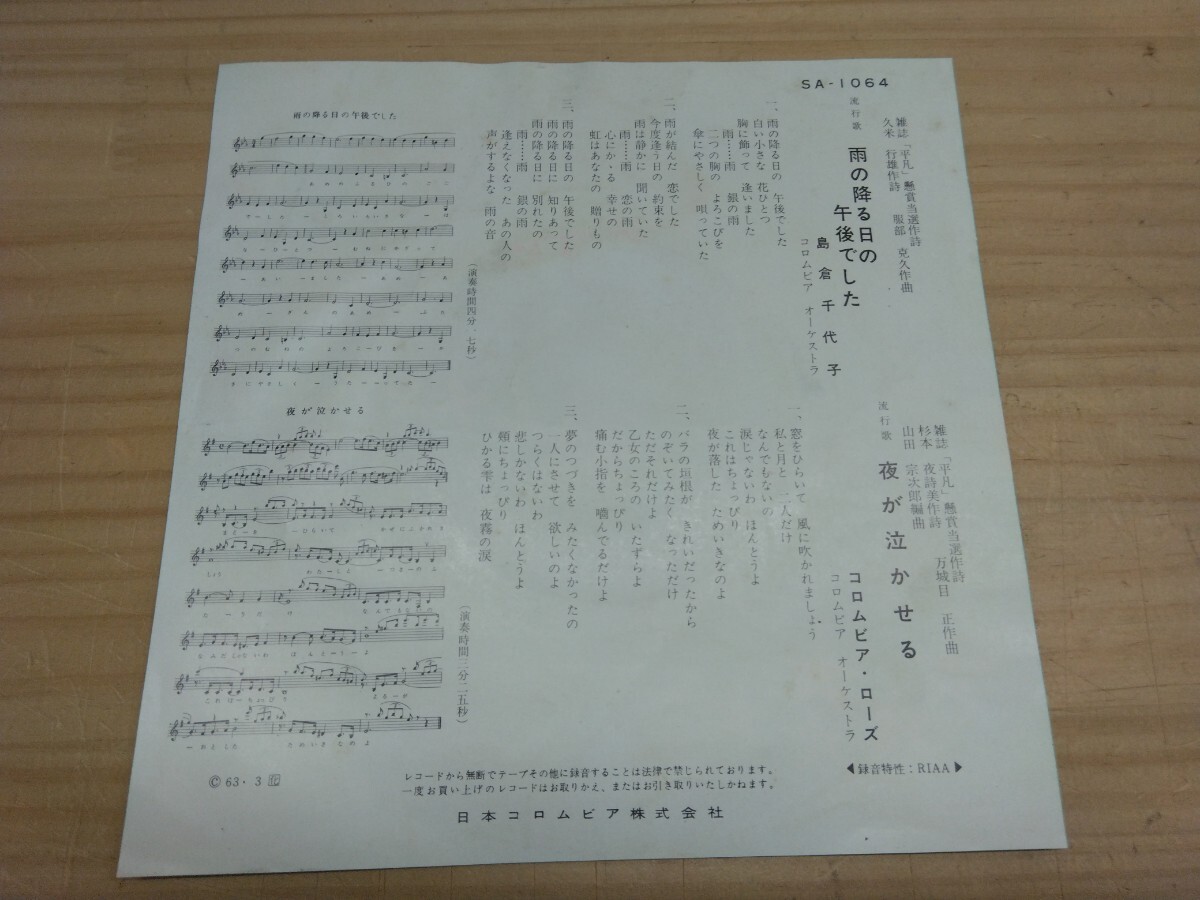 SA-1064
雑誌「平凡」懸賞当選作詩
久米 行雄作詩 服部 克久作曲
流行歌
雨の降る日の
午後でした
島倉千代子
コロムビア オーケストラ
一、雨の降る日の 午後でした
白い小さな 花ひとつ
胸に飾って 逢いました
雨……雨 銀の雨
二つの胸の よろこびを
傘にやさしく 唄っていた
二、雨が結んだ 恋でした
今度逢う日の 約束を
雨は静かに 聞いていた
雨……雨 恋の雨
心にかゝる 幸せの
虹はあなたの 贈りもの
三、雨の降る日の 午後でした
雨の降る日に 知りあって
雨の降る日に 別れたの
雨……雨 銀の雨
逢えなくなった あの人の
声がするよな 雨の音
(演奏時間四分、七秒)
雨の降る日の午後でした
雑誌「平凡」懸賞当選作詩
杉本 夜詩美作詩 万城目 正作曲
山田 宗次郎編曲
流行歌
夜が泣かせる
コロムビア・ローズ
コロムビア オーケストラ
一、窓をひらいて 風に吹かれましょう
私と月と 二人だけ
なんでもないの
涙じゃないわ ほんとうよ
これはちょっぴり
夜が落した ためいきなのよ
二、バラの垣根が きれいだったから
のぞいてみたく なっただけ
ただそれだけよ
乙女のころの いたずらよ
だからちょっぴり
痛む小指を 嚙んでるだけよ
三、夢のつづきを みたくなかったの
一人にさせて 欲しいのよ
つらくはないわ
悲しかないわ ほんとうよ
頰にちょっぴり
ひかる雫は 夜霧の涙
(演奏時間三分二五秒)
夜が泣かせる
◀録音特性：RIAA▶
レコードから無断でテープその他に録音することは法律で禁じられております。
一度お買い上げのレコードはお取りかえ、またはお引き取りいたしかねます。
日本コロムビア株式会社
© 63・3